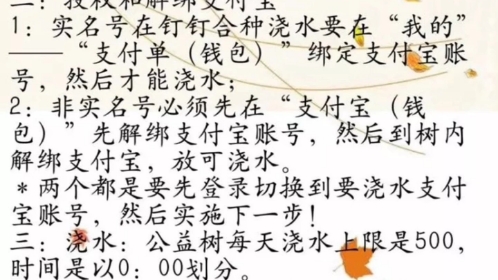 二：授权和解绑支付宝
1：实名号在钉钉合种浇水要在“我的”
——“支付单（钱包）”绑定支付宝账
号，然后才能浇水；
2：非实名号必须先在“支付宝（钱
包）”先解绑支付宝账号，然后到树内
解绑支付宝，放可浇水。
*两个都是要先登录切换到要浇水支付
宝账号，然后实施下一步！
三：浇水：公益树每天浇水上限是500，
时间是以0：00划分。